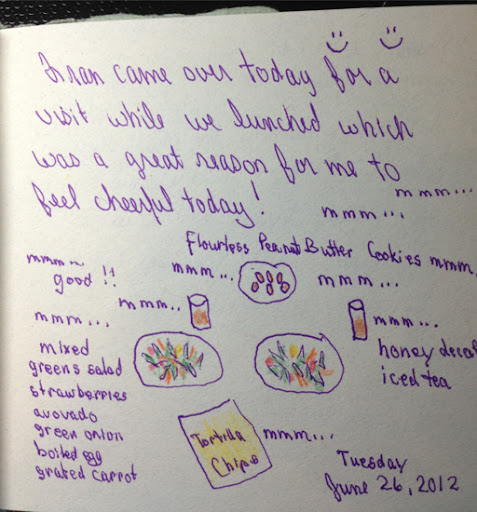 Fran came over today for a
visit while we lunched which
was a great reason for me to
feel cheerful today!
mmm...
mmm...
Flourless Peanut Butter Cookies mmm.
mmm..
good !!
mmm...
mmm...
mmm..
mmm...
mmm...
mixed
greens salad
strawberries
avovado
green onion
boiled egg
grated carrot
honey decaf
iced tea
Tortilla
Chips
mmm...
Tuesday
June 26, 2012